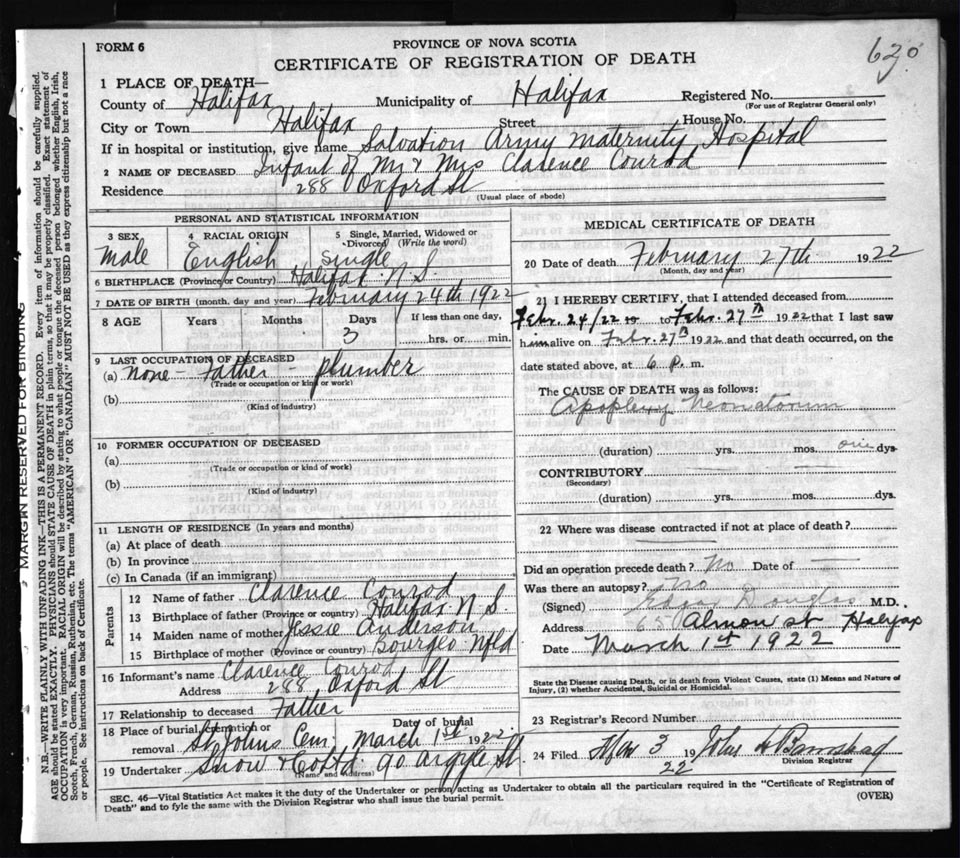 FORM 6
PROVINCE OF NOVA SCOTIA
630
CERTIFICATE OF REGISTRATION OF DEATH
1 PLACE OF DEATH—
County of Halifax Municipality of Halifax Registered No.
(For use of Registrar General only)
City or Town Halifax Street House No.
If in hospital or institution, give name Salvation Army Maternity Hospital
2 NAME OF DECEASED Infant of Mr & Mrs Clarence Conrod
Residence 288 Oxford St
(Usual place of abode)
PERSONAL AND STATISTICAL INFORMATION
3 SEX 4 RACIAL ORIGIN 5 Single, Married, Widowed or Divorced (Write the word)
Male English Single
6 BIRTHPLACE (Province or Country) Halifax N.S.
7 DATE OF BIRTH (month, day and year) February 24th 1922
8 AGE Years Months Days If less than one day,
3 hrs. or min.
9 LAST OCCUPATION OF DECEASED
(a) None - Father - plumber
(Trade or occupation or kind or work)
(b)
(Kind of industry)
10 FORMER OCCUPATION OF DECEASED
(a)
(Trade or occupation or kind of work)
(b)
(Kind of industry)
11 LENGTH OF RESIDENCE (In years and months)
(a) At place of death
(b) In province
(c) In Canada (if an immigrant)
Parents
12 Name of father Clarence Conrod
13 Birthplace of father (Province or country) Halifax N S
14 Maiden name of mother Jessie Anderson
15 Birthplace of mother (Province or country) Bourgeo Nfld
16 Informant's name Clarence Conrod
Address 288 Oxford St
17 Relationship to deceased Father
18 Place of burial, cremation or removal St Johns Cem Date of burial March 1st 1922
19 Undertaker Snow & Co Ltd 90 Argyle St.
(Name and Address)
MEDICAL CERTIFICATE OF DEATH
20 Date of death February 27th 1922
(Month, day and year)
21 I HEREBY CERTIFY, that I attended deceased from
Febr. 24/22 19 to Febr. 27th 1922 that I last saw
him alive on Febr. 27th 1922 and that death occurred, on the
date stated above, at 6 p. m.
The CAUSE OF DEATH was as follows:
Apoplexy Neonatorum
(duration) yrs. mos. one dys.
CONTRIBUTORY
(Secondary)
(duration) yrs. mos. dys.
22 Where was disease contracted if not at place of death?
Did an operation precede death? No Date of
Was there an autopsy? No
(Signed) Douglas M.D.
Address 65 Almon St Halifax
Date March 1st 1922
State the Disease causing Death, or in death from Violent Causes, state (1) Means and Nature of
Injury, (2) whether Accidental, Suicidal or Homicidal.
23 Registrar's Record Number
24 Filed Mar 3 19 22 John
Division Registrar
SEC. 46—Vital Statistics Act makes it the duty of the Undertaker or person acting as Undertaker to obtain all the particulars required in the "Certificate of Registration of
Death" and to fyle the same with the Division Registrar who shall issue the burial permit.
(OVER)
MARGIN RESERVED FOR BINDING
N.B.—WRITE PLAINLY WITH UNFADING INK—THIS IS A PERMANENT RECORD. Every item of information should be carefully supplied.
AGE should be stated EXACTLY. PHYSICIANS should STATE CAUSE OF DEATH in plain terms, so that it may be properly classified. Exact statement of
OCCUPATION is very important. RACIAL ORIGIN will be described by stating to what people or tongue the deceased person belonged whether English, Irish,
Scotch, French, German, Russian, Ruthenian, etc. The terms "AMERICAN" OR "CANADIAN" MUST NOT BE USED as they express citizenship but not a race
or people. See instructions on back of Certificate.